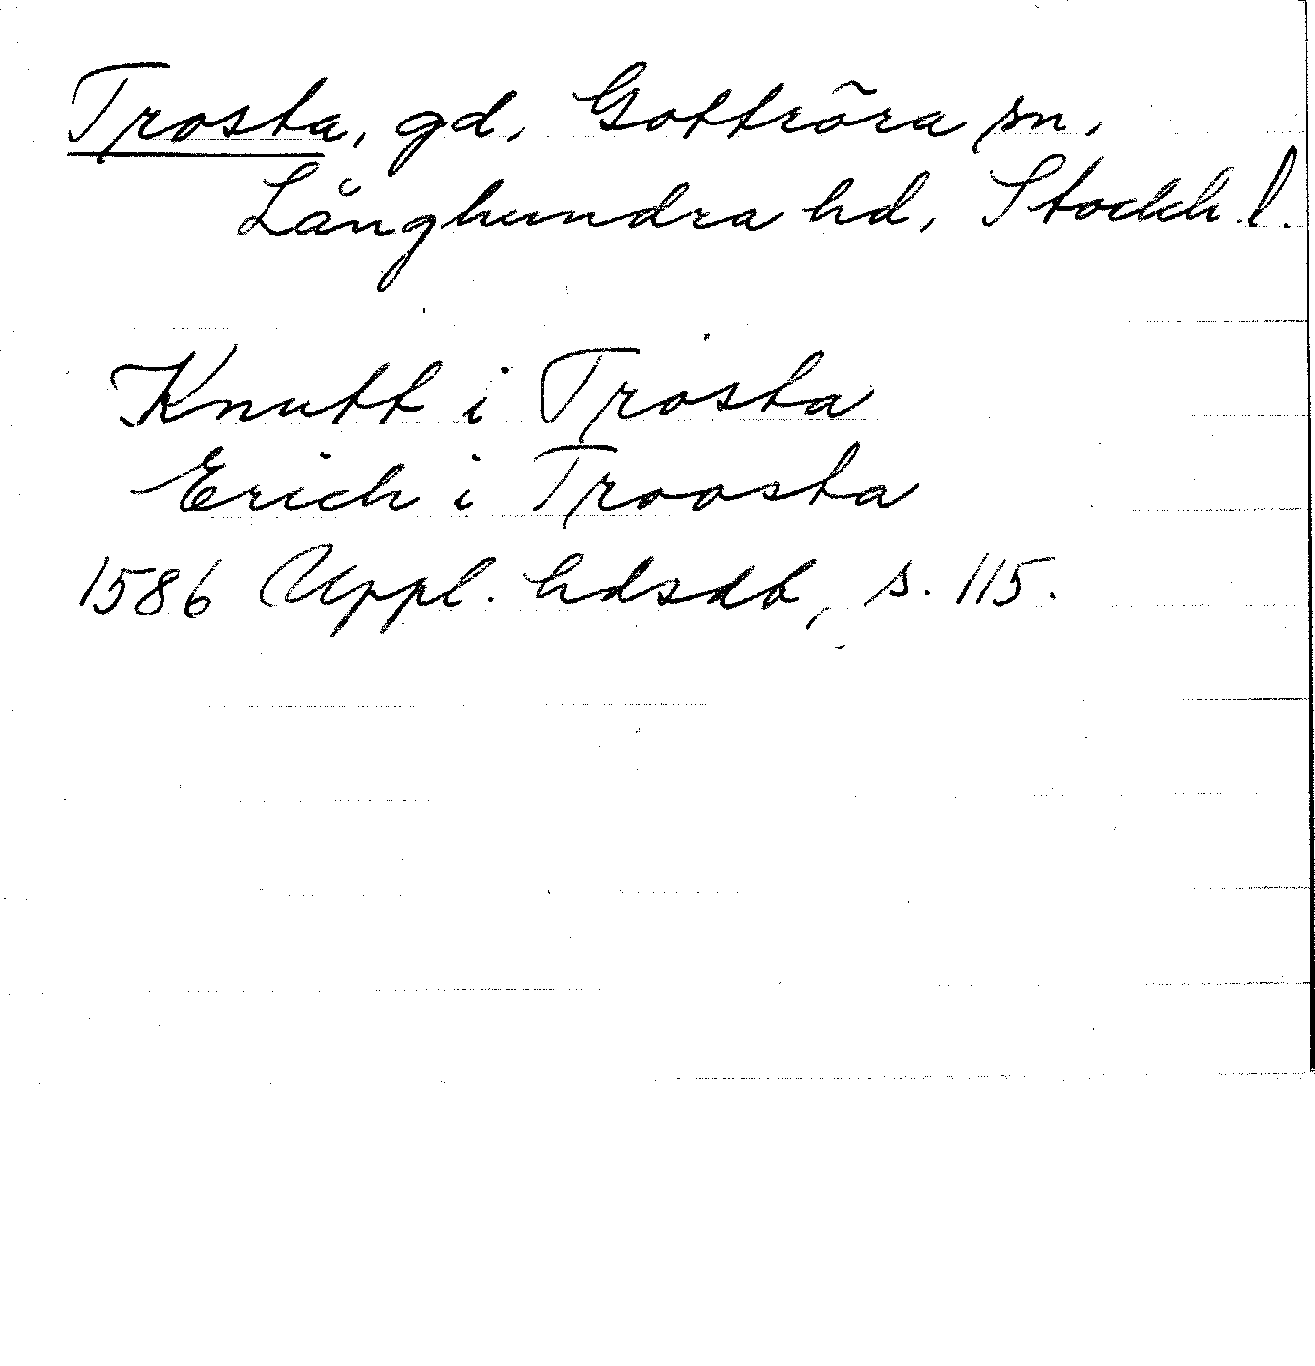 Trosta, gd, Gottröra sn,
Långhundra hd, Stockh. l.
Knutt i Trosta
Erich i Troosta
1586 Uppl. hdsdb, s. 115.